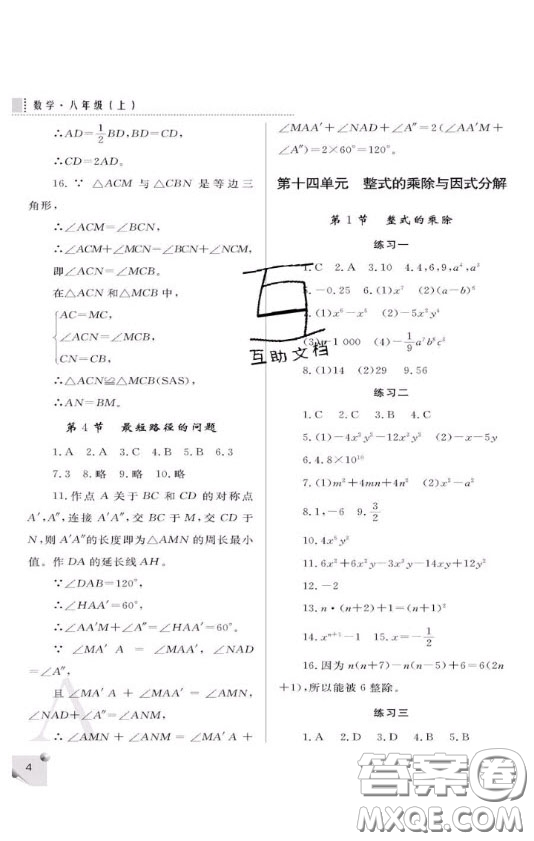 数学·八年级(上)
∴AD=1/2BD,BD=CD,
∴CD=2AD.
16. ∵ △ACM 与 △CBN 是等边三
角形,
∴∠ACM=∠BCN,
∴∠ACM+∠MCN=∠BCN+∠NCM,
即∠ACN=∠MCB.
在△ACN 和△MCB 中,
AC=MC,
∠ACN=∠MCB,
CN=CB,
∴△ACN≌△MCB(SAS),
∴AN=BM.
第 4 节 最短路径的问题
1.A 2.A 3.C 4.B 5.B 6.3
7.3 8.略 9.略 10.略
11.作点 A 关于 BC 和 CD 的对称点
A′,A″,连接 A′A″,交 BC 于 M,交 CD 于
N,则 A′A″的长度即为△AMN 的周长最小
值。作 DA 的延长线 AH。
∵∠DAB=120°,
∴∠HAA′=60°,
∴∠AA′M+∠A″=∠HAA′=60°.
∵ ∠MA′A = ∠MAA′,∠NAD
=∠A″,
且 ∠MA′A + ∠MAA′ = ∠AMN,
∠NAD+∠A″=∠ANM,
∴ ∠AMN + ∠ANM = ∠MA′A +
4
∠MAA′+∠NAD+∠A″=2(∠AA′M+
∠A″)=2×60°=120°.
第十四单元 整式的乘除与因式分解
第 1 节 整式的乘除
练习一
1.C 2.A 3.10 4.4,6,9,a⁴,a²
−0.25 6.(1)x⁷ (2)(a−b)⁸
(1)x⁶−x⁵ (2)−5x⁵y⁴
1 000 (4)−1/9a⁷b⁸c⁵
8.(1)14 (2)29 9.56
练习二
1.C 2.C 3.B 4.C
5.(1)−4x²y²−12x²y² (2)−x−5y
6.4.8×10¹⁰
7.(1)m²+4mn+4n² (2)x⁴y⁴
8.1,−6 9.3/2
10.4x⁵y²
11.6x²+6x²y−3x²y−14xy+12y²
12.−2
13.n·(n+2)+1=(n+1)²
14.xⁿ⁺¹−1 15.x=−1/2
16.因为 n(n+7)−n(n−5)+6=6(2n
+1),所以能被 6 整除。
练习三
1.A 2.D 3.D 4.B 5.B
互助文档
答案卷
MXQE.COM